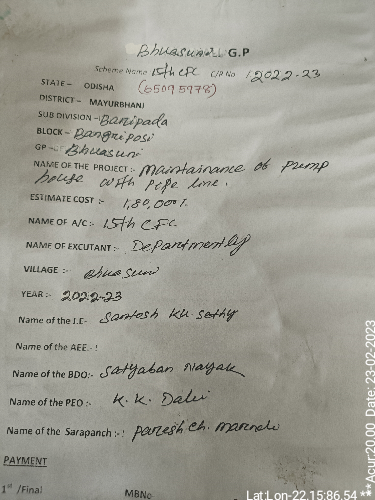 Bhuasuni G.P
Scheme Name 15th CFC C/P No 12022-23
STATE - ODISHA (65095978)
DISTRICT - MAYURBHANJ
SUB DIVISION - Baripada
BLOCK - Bangriposi
GP - Bhuasuni
NAME OF THE PROJECT :- Maintainance of Pump
house with pipe line.
ESTIMATE COST :- 1,80,000/.
NAME OF A/C :- 15th C.F.C.
NAME OF EXCUTANT :- Departmently
VILLAGE :- Bhuasuni
YEAR :- 2022-23
Name of the J.E- Santosh Ku. Sethy
Name of the AEE.- !
Name of the BDO:- Satyaban Nayak
Name of the PEO :- K.K. Dalei
Name of the Sarapanch :- ! Paresh ch. Marndi
PAYMENT
1st /Final MBNo
Lat:Lon-22.15:86.54 *** Acur:20.00 Date: 23-02-2023